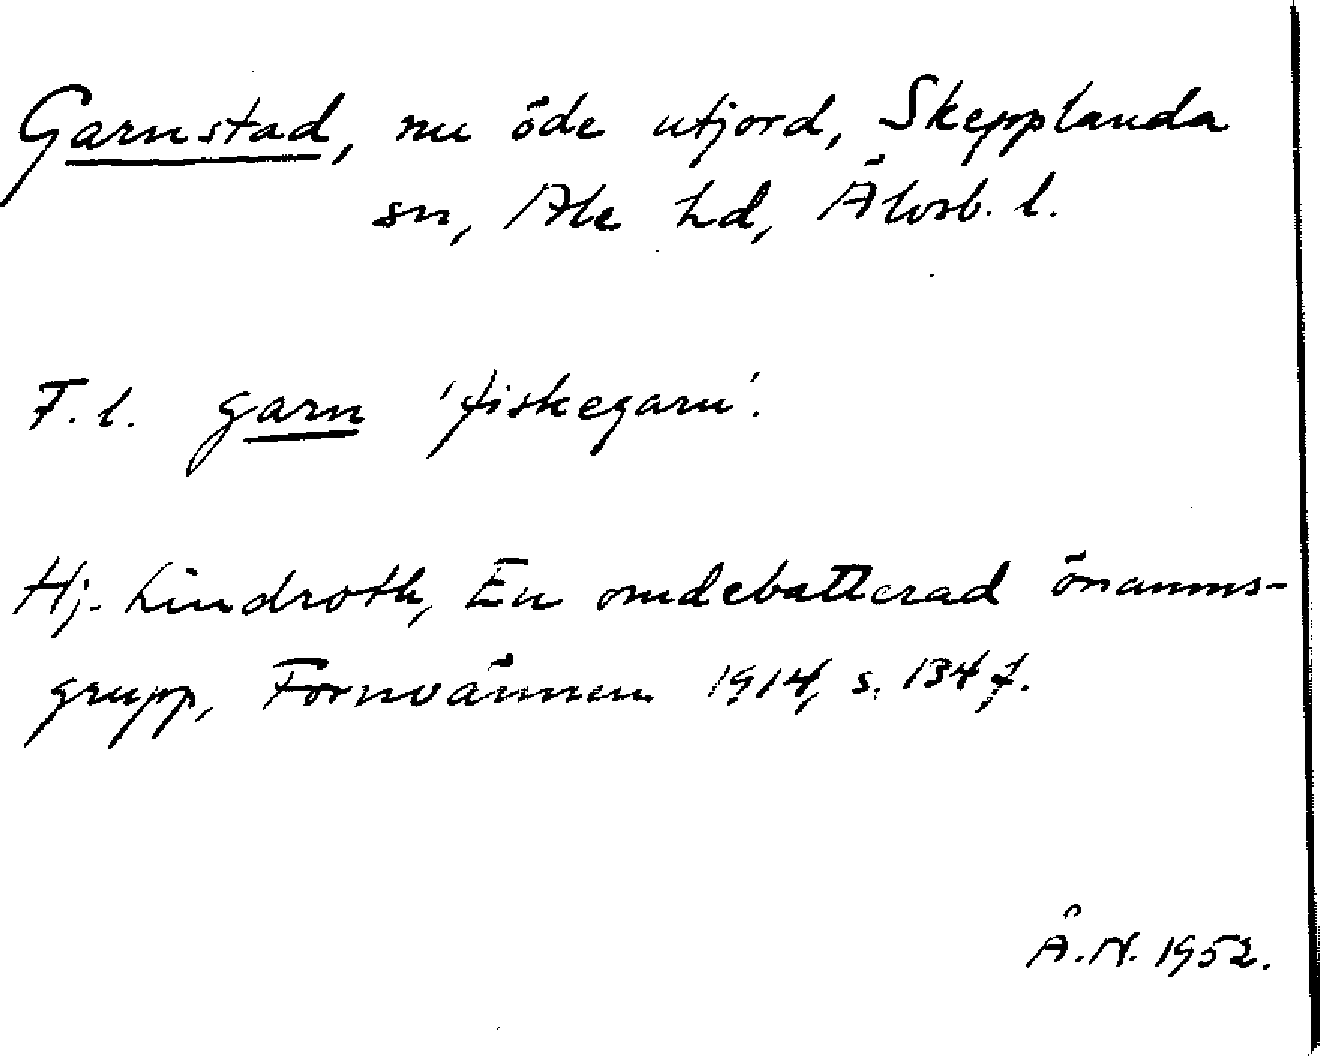 Garnstad, nu öde utjord, Skepplanda
sn, Ale hd, Älvsb. l.
F. l. garn 'fiskegarn'.
Hj. Lindroth, En omdebatterad önamns-
grupp, Fornvännen 1914, s. 134 f.
Å. N. 1952.